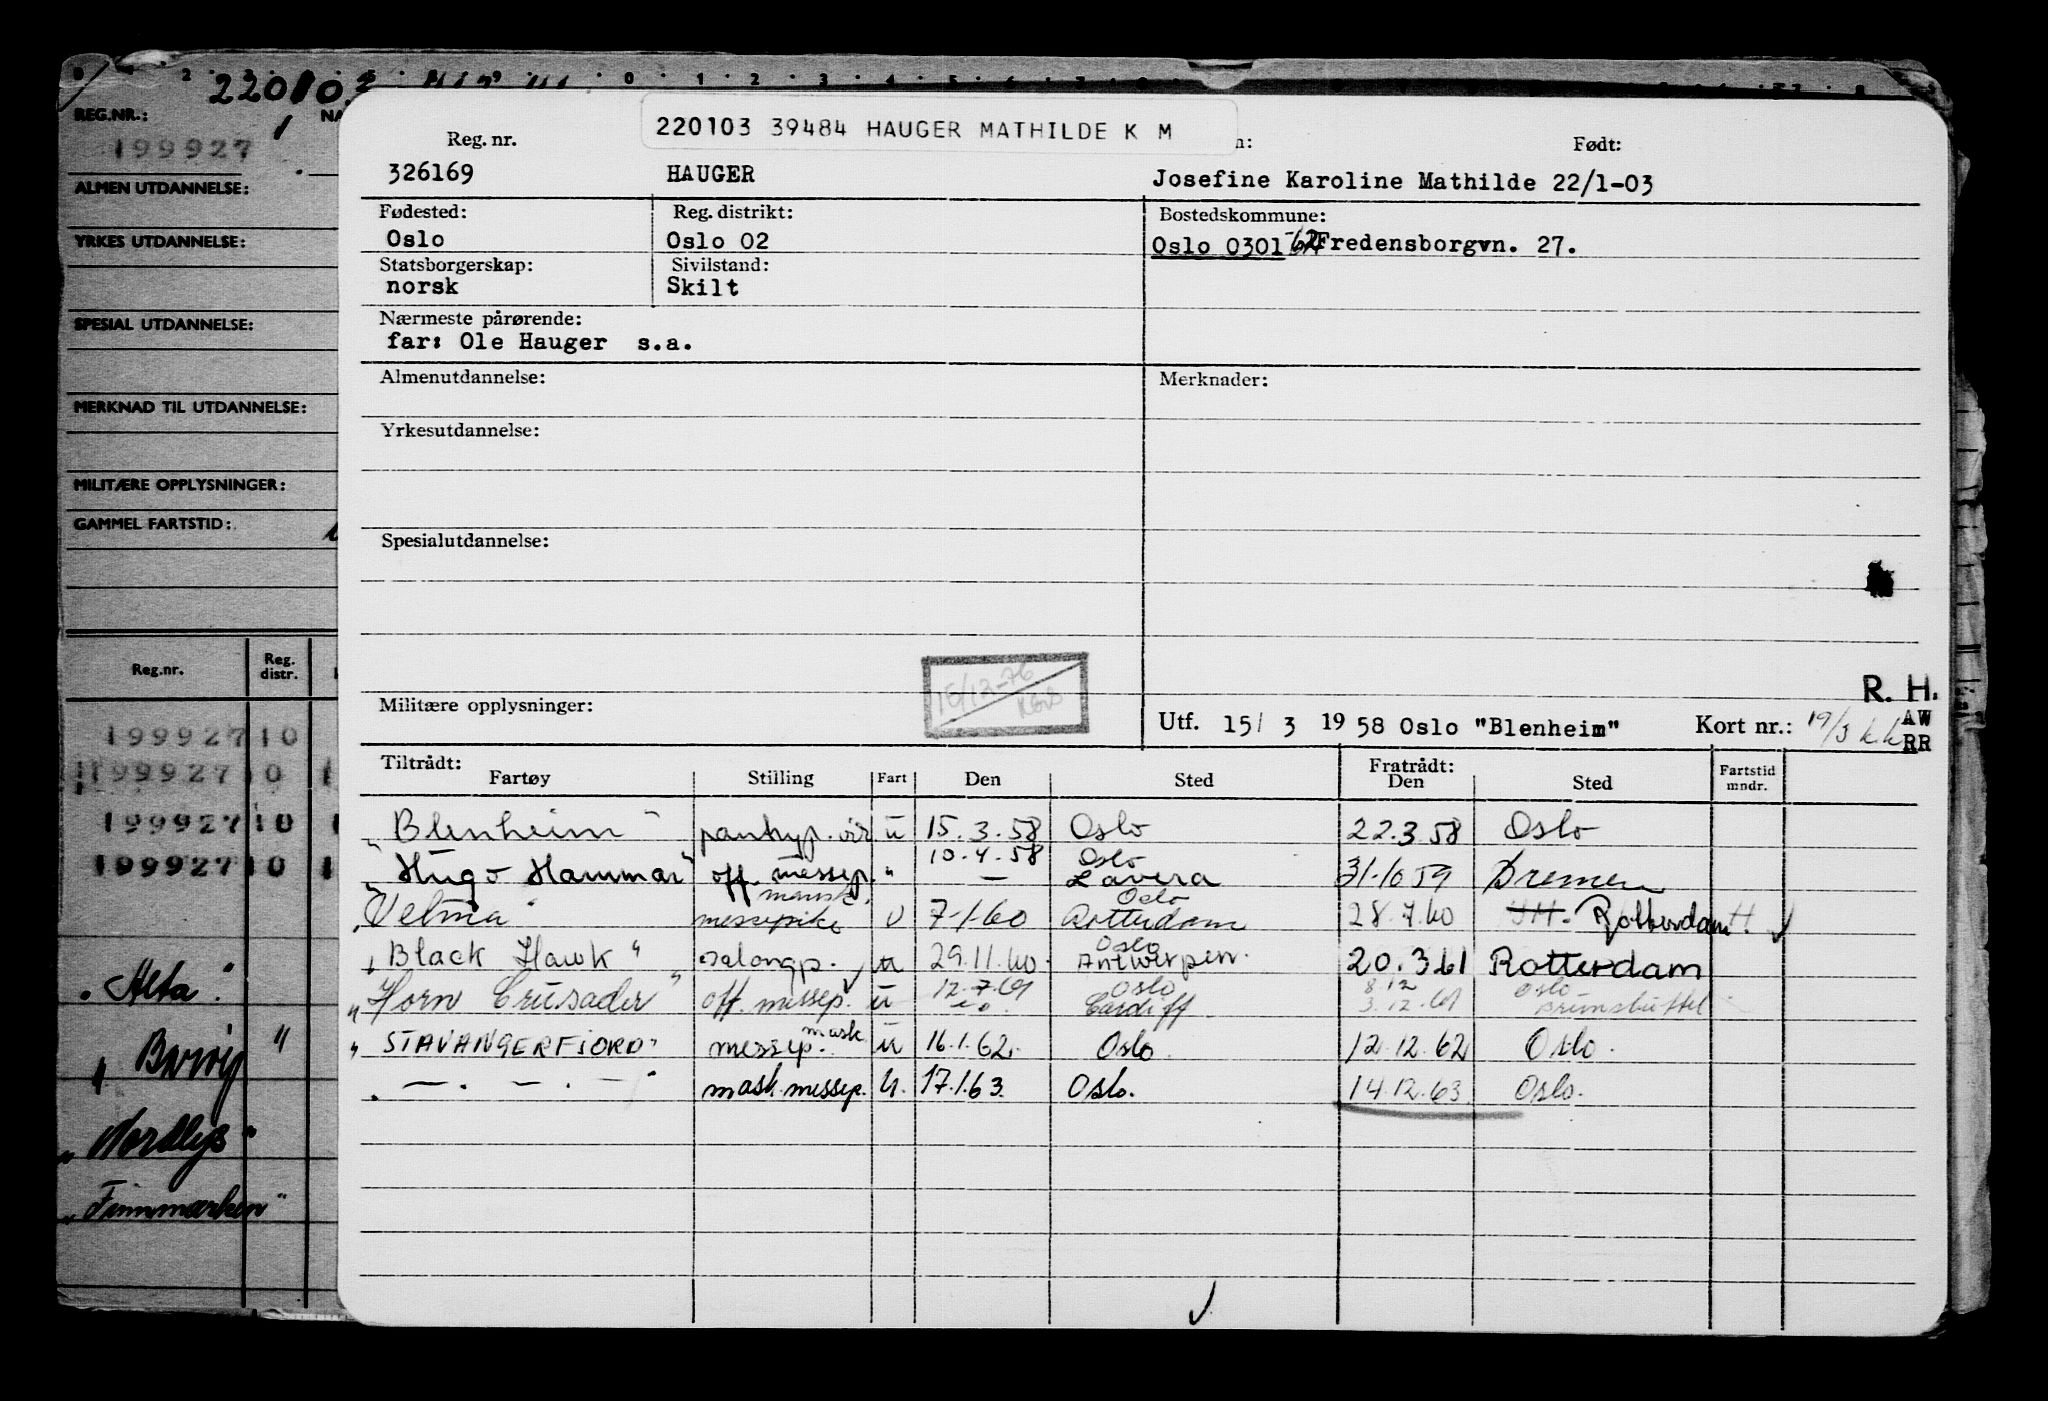 220103
REG.NR.:
199927
ALMEN UTDANNELSE:
YRKES UTDANNELSE:
SPESIAL UTDANNELSE:
MERKNAD TIL UTDANNELSE:
MILITÆRE OPPLYSNINGER:
GAMMEL FARTSTID:
Reg.nr. Reg. distr.
199927 10
199927 10 1
199927 10 1
199927 10 1
"Alta"
"Borvig"
"Nordlys"
"Finnmarken"
220103 39484 HAUGER MATHILDE K M
Reg. nr. Født:
326169 HAUGER Josefine Karoline Mathilde 22/1-03
Fødested: Reg. distrikt: Bostedskommune:
Oslo Oslo 02 Oslo 0301 Fredensborgvn. 27.
Statsborgerskap: Sivilstand:
norsk Skilt
Nærmeste pårørende:
far: Ole Hauger s.a.
Almenutdannelse: Merknader:
Yrkesutdannelse:
Spesialutdannelse:
R. H.
15/12-76
Militære opplysninger: Utf. 15/ 3 19 58 Oslo "Blenheim" Kort nr.: 19/3 AW
RR
Tiltrådt: Fratrådt:
Fartøy Stilling Fart Den Sted Den Sted Fartstid mndr.
"Blenheim" pantryp. u 15.3.58 Oslo 22.3.58 Oslo
10.4.58 Oslo
"Hugo Hammar" off. messep. " — Lavera 31.10.59 Bremen
mansk. Oslo
"Velma" messepike u 7.1.60 Rotterdam 28.7.60 Rotterdam
Oslo
"Black Hawk" salongp. u 29.11.60. Antwerpen. 20.3.61 Rotterdam
12.7.61 Oslo 8.12 Oslo
"Horn Crusader" off. messep. u Cardiff 3.12.61 Brunsbuttel
mask
"STAVANGERFJORD" messep. u 16.1.62. Oslo 12.12.62 Oslo.
" — . — . — " mask.messep. u. 17.1.63. Oslo. 14.12.63 Oslo.